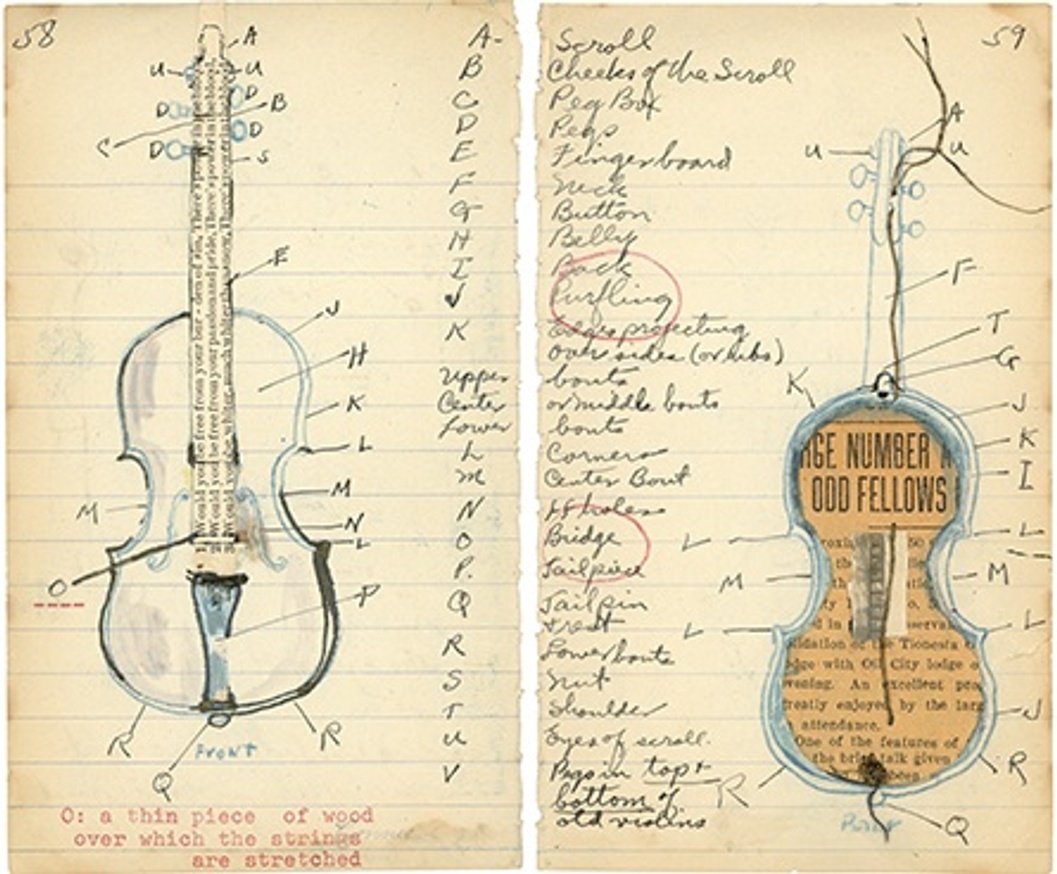 58
A
U
U
D
D
B
D
C
D
S
E
J
H
K
L
M
M
N
L
O
P
R
R
Q
Would you be free from your bur - den of sin, There's
Would you be free from your passion and pride, There's
Would you be whiter, much whiter than snow, There's
FRONT
O: a thin piece of wood
over which the strings
are stretched
A-
B
C
D
E
F
G
H
I
J
K
Upper
Center
Lower
L
M
N
O
P.
Q
R
S
T
U
V
59
Scroll
Cheeks of the Scroll
Peg Box
Pegs
Fingerboard
Neck
Button
Belly
Back
Purfling
Edges projecting
over sides (or ribs)
bouts
or middle bouts
bouts
Corners
Center Bout
ff holes
Bridge
Tailpiece
Tailpin
Lower bouts
Nut
Shoulder
Eyes of scroll.
Pegs in top +
bottom of
old violins
A
U
U
F
T
G
K
J
K
I
L
L
M
M
L
L
J
R
R
Q
NUMBER
ODD FELLOWS
50
the
in
of the Tionesta
with Oil City lodge
evening. An excellent
greatly enjoyed by the
attendance.
One of the features of
the talk given